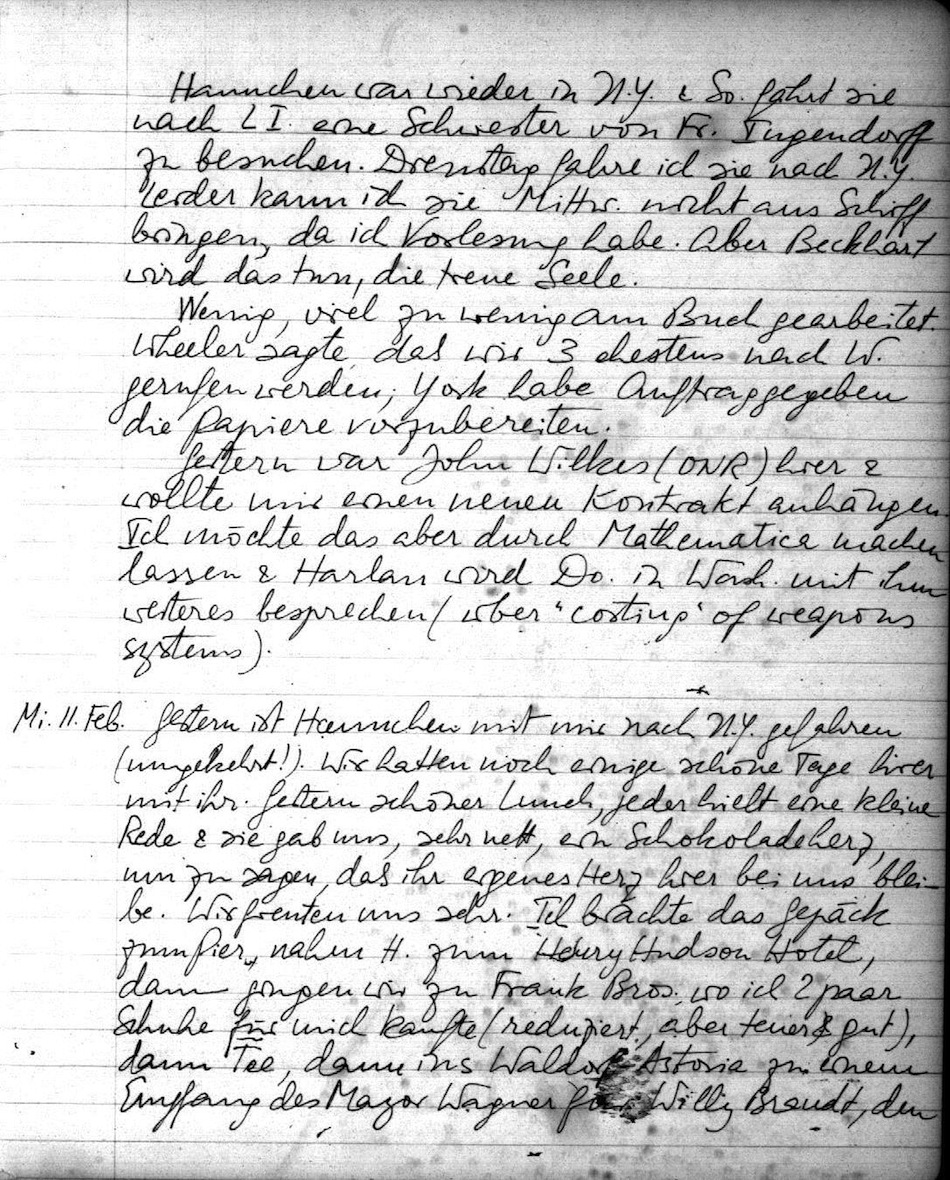 Hannchen war wieder in N.Y. & So. fährt sie
nach L I. eine Schwester von Fr. Tugendorff
zu besuchen. Dienstag fahre ich sie nach N.Y.
Leider kann ich sie Mittw. nicht aus Schiff
bringen, da ich Vorlesung habe. Aber Beckhart
wird das tun, die treue Seele.
Wenig, viel zu wenig am Buch gearbeitet.
Wheeler sagte das wir 3 ehestens nach W.
gerufen werden; York habe Auftrag gegeben
die Papiere vorzubereiten.
Gestern war John Wilkes (ONR) hier &
wollte mir einen neuen Kontrakt anhängen
Ich möchte das aber durch Mathematica machen
lassen & Harlan wird Do. in Wash. mit ihm
weiteres besprechen (über "costing" of weapons
systems).
Mi. 11. Feb. Gestern ist Hannchen mit mir nach N.Y. gefahren
(umgekehrt!). Wir hatten noch einige schöne Tage hier
mit ihr. Gestern schöner Lunch, jeder hielt eine kleine
Rede & sie gab uns, sehr nett, ein Schokoladeherz,
um zu sagen, das ihr eigenes Herz hier bei uns blei-
be. Wir freuten uns sehr. Ich brachte das Gepäck
zum Pier, nahm H. zum Henry Hudson Hotel,
dann gingen wir zu Frank Bros. wo ich 2 paar
Schuhe für mich kaufte (reduziert, aber teuer & gut),
dann Tee, dann ins Waldorf Astoria zu einem
Empfang des Mayor Wagner für Willy Brandt, den